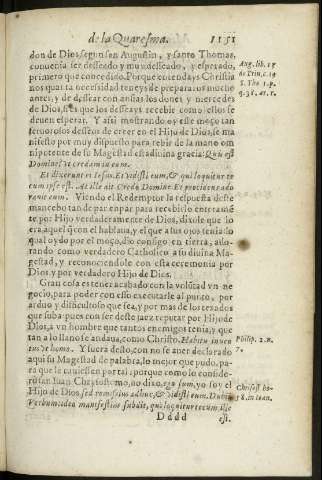 de la Quaresma. 1151
don de Dios, segun sen Augustin, y santo Thomas,
conuenia ser desseado y muy desseado, y esperado,
primero que concedido. Porque entendays Christia
nos quanta necessidad teneys de prepararos mucho
antes, y de dessear con ansias los dones y mercedes
de Dios, si es que los desseays recebir como ellos se
deuen esperar. Y assi mostrando oy este moço tan
feruorosos desseos de creer en el Hijo de Dios, se ma
nifesto por muy dispuesto para rebir de la mano om
nipotente de su Magestad esta diuina gracia: Quis est
Domine? vt credam in eum.
Et dixit ei Iesus. Et vidisti eum, & qui loquitur te
cum ipse est. At ille ait Credo Domine. Et procidens ado
rauit eum. Viendo el Redemptor la respuesta deste
mancebo tan de par en par para recebirlo enterame̅
te por Hijo verdaderamente de Dios, dixole que lo
era, aquel q̃ con el hablaua, y el que a sus ojos tenia do
qual oydo por el moço, dio consigo en tierra, ado-
rando como verdadero Catholico a su diuina Ma-
gestad, y reconociendole con esta ceremonia por
Dios y por verdadero Hijo de Dios.
Gran cosa es tener acabado con la volũtad vn ne
gocio, para poder con esto executarle al punto, por
arduo y dificultoso que sea, y por mas de los texados
que suba: pues con ser deste jaez reputar por Hijo de
Dios, a vn hombre que tantos enemigos tenia, y que
tan a lo llano se andaua, como Christo. Habitu inuen
tus vt homo. Y fuera desto, con no se auer declarado
aqui su Magestad de palabra, lo mejor que pudo, pa-
ra que le tuuiessen por tal: porque como lo conside-
ro san Iuan Chrysostomo, no dixo, ego sum, yo soy el
Hijo de Dios, sed remissius adhuc, & vidisti eum. Dubiũ
Verbum: ideo manifestius subdit, qui loquitur tecum, ille
Dddd est.
Aug. lib. 15
de Trin. c. 19
S. Tho 1. p.
q. 38. ar. 1.
Philip. 2. n.
7.
Chrisost. ho.
58. in Ioan.